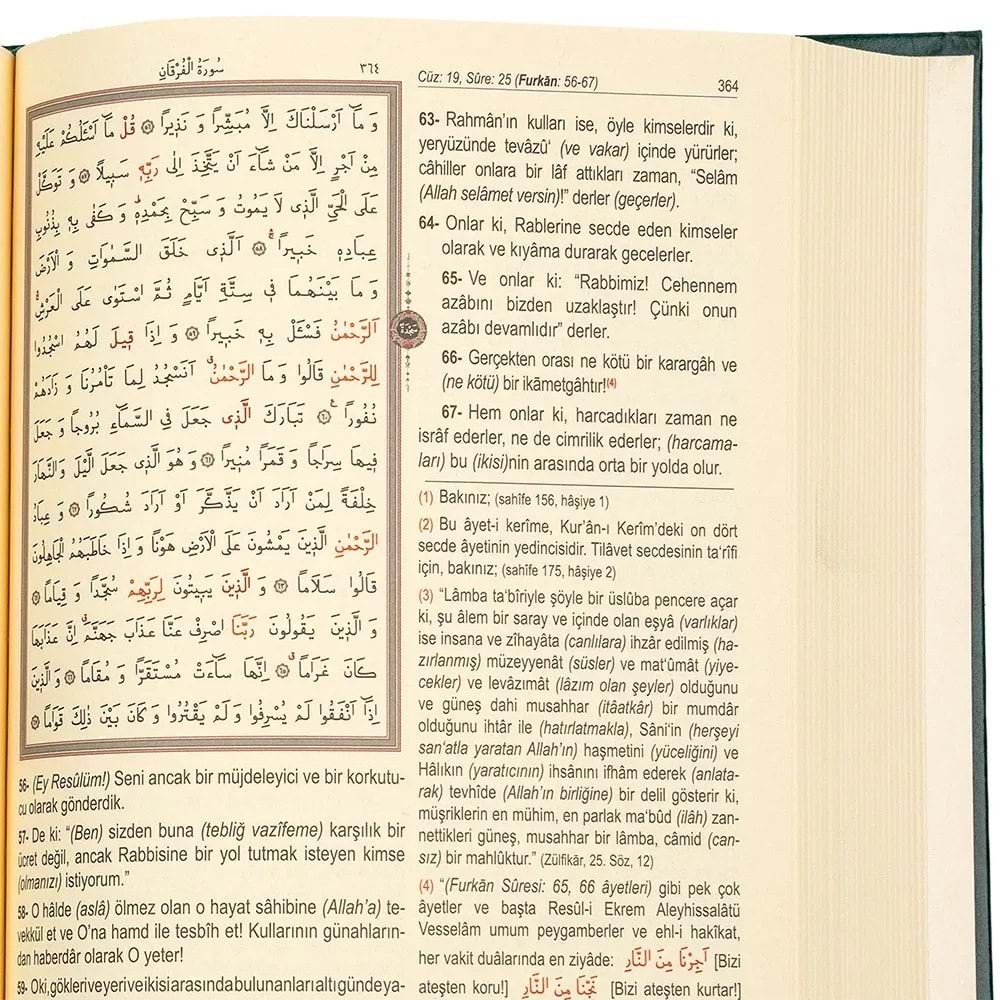 سُورَةُ الْفُرْقَانِ ٣٦٤
وَ مَٓا اَرْسَلْنَاكَ اِلَّا مُبَشِّرًا وَ نَذ۪يرًا ﴿٥٦﴾ قُلْ مَٓا اَسْئَلُكُمْ عَلَيْهِ
مِنْ اَجْرٍ اِلَّا مَنْ شَٓاءَ اَنْ يَتَّخِذَ اِلٰى رَبِّه۪ سَب۪يلًا ﴿٥٧﴾ وَ تَوَكَّلْ
عَلَى الْحَيِّ الَّذ۪ي لَا يَمُوتُ وَ سَبِّحْ بِحَمْدِه۪ۜ وَ كَفٰى بِه۪ بِذُنُوبِ
عِبَادِه۪ خَب۪يرًاۚ ﴿٥٨﴾ اَلَّذ۪ي خَلَقَ السَّمٰوَاتِ وَ الْاَرْضَ
وَ مَا بَيْنَهُمَا ف۪ي سِتَّةِ اَيَّامٍ ثُمَّ اسْتَوٰى عَلَى الْعَرْشِۚ
اَلرَّحْمٰنُ فَسْئَلْ بِه۪ خَب۪يرًا ﴿٥٩﴾ وَ اِذَا ق۪يلَ لَهُمُ اسْجُدُوا
لِلرَّحْمٰنِ قَالُوا وَ مَا الرَّحْمٰنُۗ اَنَسْجُدُ لِمَا تَأْمُرُنَا وَ زَادَهُمْ
نُفُورًا ﴿٦٠﴾ تَبَارَكَ الَّذ۪ي جَعَلَ فِي السَّمَٓاءِ بُرُوجًا وَ جَعَلَ
ف۪يهَا سِرَاجًا وَ قَمَرًا مُن۪يرًا ﴿٦١﴾ وَ هُوَ الَّذ۪ي جَعَلَ الَّيْلَ وَ النَّهَارَ
خِلْفَةً لِمَنْ اَرَادَ اَنْ يَذَّكَّرَ اَوْ اَرَادَ شُكُورًا ﴿٦٢﴾ وَ عِبَادُ
الرَّحْمٰنِ الَّذ۪ينَ يَمْشُونَ عَلَى الْاَرْضِ هَوْنًا وَ اِذَا خَاطَبَهُمُ الْجَاهِلُونَ
قَالُوا سَلَامًا ﴿٦٣﴾ وَ الَّذ۪ينَ يَب۪يتُونَ لِرَبِّهِمْ سُجَّدًا وَ قِيَامًا ﴿٦٤﴾
وَ الَّذ۪ينَ يَقُولُونَ رَبَّنَا اصْرِفْ عَنَّا عَذَابَ جَهَنَّمَۗ اِنَّ عَذَابَهَا
كَانَ غَرَامًاۗ ﴿٦٥﴾ اِنَّهَا سَٓاءَتْ مُسْتَقَرًّا وَ مُقَامًا ﴿٦٦﴾ وَ الَّذ۪ينَ
اِذَٓا اَنْفَقُوا لَمْ يُسْرِفُوا وَ لَمْ يَقْتُرُوا وَ كَانَ بَيْنَ ذٰلِكَ قَوَامًا ﴿٦٧﴾
سَجْدَة
56- (Ey Resûlüm!) Seni ancak bir müjdeleyici ve bir korkutu-
cu olarak gönderdik.
57- De ki: “(Ben) sizden buna (tebliğ vazîfeme) karşılık bir
ücret değil, ancak Rabbisine bir yol tutmak isteyen kimse
(olmanızı) istiyorum.”
58- O hâlde (aslâ) ölmez olan o hayat sâhibine (Allah’a) te-
vekkül et ve O’na hamd ile tesbîh et! Kullarının günahların-
dan haberdâr olarak O yeter!
59- O ki, gökleri ve yeri ve ikisi arasında bulunanları altı günde ya-
Cüz: 19, Sûre: 25 (Furkān: 56-67) 364
63- Rahmân’ın kulları ise, öyle kimselerdir ki,
yeryüzünde tevâzû‘ (ve vakar) içinde yürürler;
câhiller onlara bir lâf attıkları zaman, “Selâm
(Allah selâmet versin)!” derler (geçerler).
64- Onlar ki, Rablerine secde eden kimseler
olarak ve kıyâma durarak gecelerler.
65- Ve onlar ki: “Rabbimiz! Cehennem
azâbını bizden uzaklaştır! Çünki onun
azâbı devamlıdır” derler.
66- Gerçekten orası ne kötü bir karargâh ve
(ne kötü) bir ikāmetgâhtır!(4)
67- Hem onlar ki, harcadıkları zaman ne
isrâf ederler, ne de cimrilik ederler; (harcama-
ları) bu (ikisi)nin arasında orta bir yolda olur.
(1) Bakınız; (sahîfe 156, hâşiye 1)
(2) Bu âyet-i kerîme, Kur’ân-ı Kerîm’deki on dört
secde âyetinin yedincisidir. Tilâvet secdesinin ta‘rîfi
için, bakınız; (sahîfe 175, hâşiye 2)
(3) “Lâmba ta‘bîriyle şöyle bir üslûba pencere açar
ki, şu âlem bir saray ve içinde olan eşyâ (varlıklar)
ise insana ve zîhayâta (canlılara) ihzâr edilmiş (ha-
zırlanmış) müzeyyenât (süsler) ve mat‘ûmât (yiye-
cekler) ve levâzımât (lâzım olan şeyler) olduğunu
ve güneş dahi musahhar (itâatkâr) bir mumdâr
olduğunu ihtâr ile (hatırlatmakla), Sâni‘in (herşeyi
san‘atla yaratan Allah’ın) haşmetini (yüceliğini) ve
Hâlıkın (yaratıcının) ihsânını ifhâm ederek (anlata-
rak) tevhîde (Allah’ın birliğine) bir delil gösterir ki,
müşriklerin en mühim, en parlak ma‘bûd (ilâh) zan-
nettikleri güneş, musahhar bir lâmba, câmid (can-
sız) bir mahlûktur.” (Zülfikār, 25. Söz, 12)
(4) “(Furkān Sûresi: 65, 66 âyetleri) gibi pek çok
âyetler ve başta Resûl-i Ekrem Aleyhissalâtü
Vesselâm umum peygamberler ve ehl-i hakîkat,
her vakit duâlarında en ziyâde: اَجِرْنَا مِنَ النَّارِ [Bizi
ateşten koru!] نَجِّنَا مِنَ النَّارِ [Bizi ateşten kurtar!]